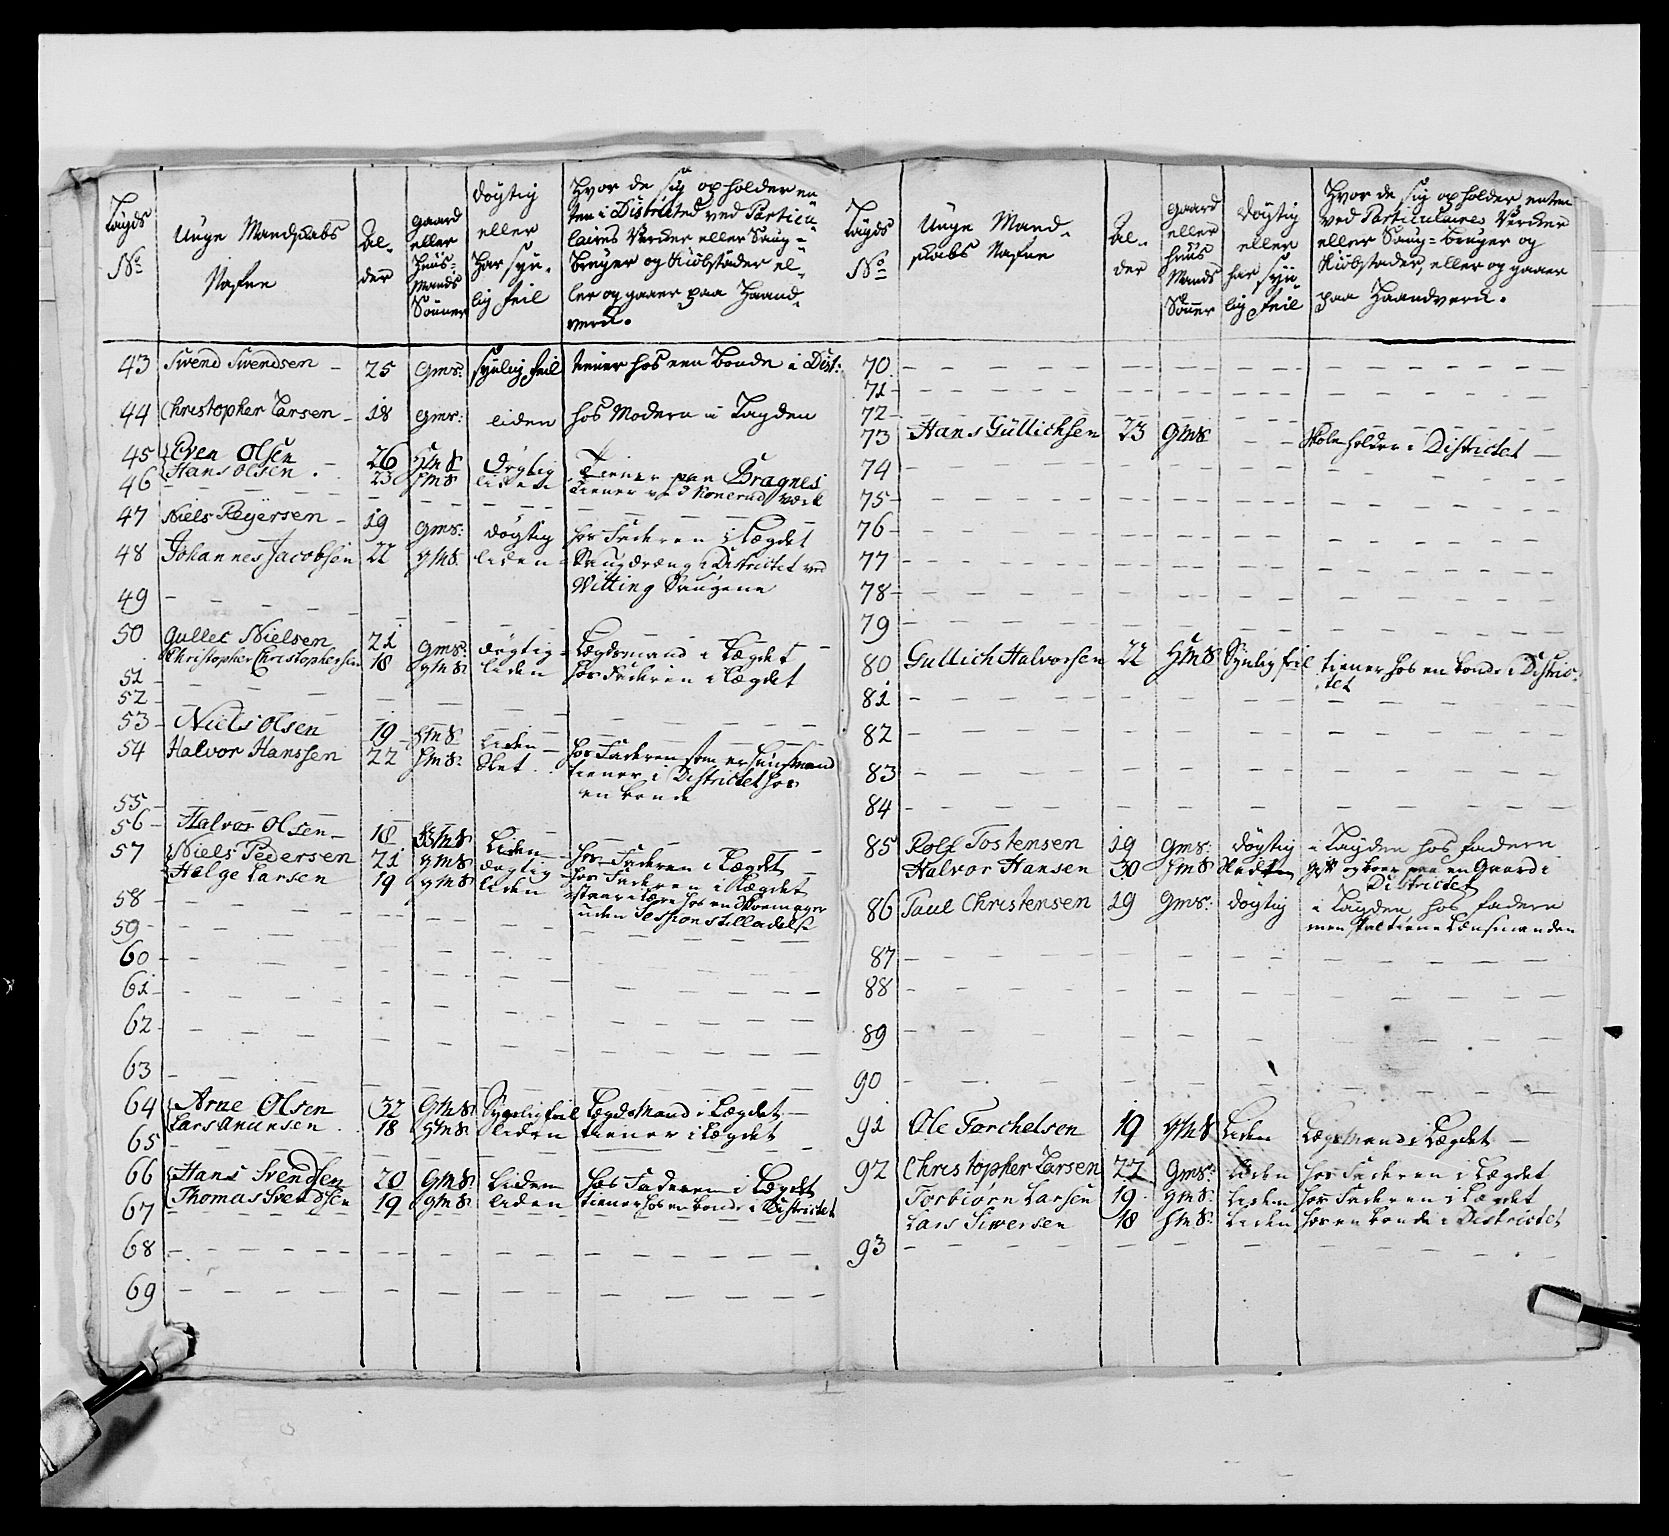 Lægds No
Unge Mandskabs Nafne
Al-der
gaard eller huus-Mands Sønner
døgtig eller har syn-lig feil
Hvor de sig opholder en-
ten i Districted ved Particu-
laires Verker eller Saug-
bruger og Kiøbstæder el-
ler og gaaer paa Haand-
verk.
43 Svend Svendsen 25 Gms: synlig feil tiener hos een bonde i Dist:
44 Christopher Larsen 18 gms: liden hos Modern i Lagden
45 Even Olsen 26 HmS Døgtig Tiener paa Bragnes
46 Hans Olsen 23 HmS liden tiener ved Konerud værk
47 Niels Reyersen 19 gms: døgtig hos Faderen i Lægdet
48 Johannes Jacobsen 22 gmS. liden Saugdræng i Districtet ved
Witting Saugene
49
50 Gullec Nielsen 21 gms: døgtig Lægdsmand i Lægdet
Christopher Christophersen 18 gms: liden hos Faderen i Lægdet
51
52
53 Niels Olsen 19 HmS liden hos Faderen som er huusmand
54 Halvor Hanssen 22 HmS: Slet tiener i Districtet hos
en bonde
55
56 Halvor Olsen 18 HmS Liden hos Faderen i Lægdet
57 Niels Pedersen 21 gmS døgtig hos Faderen i Lægdet
Helge Larsen 19 gmS liden staar i lære hos en Skoemager
uden Sessions tilladelse
58
59
60
61
62
63
64 Arne Olsen 32 GmS: Synlig feil Lægdsmand i Lægdet
Lars Knudsen 18 HmS: liden tiener i Lægdet
65
66 Hans Svendsen 20 GmS: Liden hos Faderen i Lægdet
Thomas Svendsen 19 gmS: liden tiener hos en bonde i Districtet
67
68
69
Lægds No
Unge Mand-skabs Nafne
Al-der
gaard eller huus Mands Sønner
døgtig eller har syn-lig feil
Hvor de sig opholder enten
ved Particulaires Verker
eller Saug-bruger og
Kiøbstæder, eller og gaaer
paa Haandverk.
70
71
72
73 Hans Gullichsen 23 GmS Skoleholder i Districtet
74
75
76
77
78
79
80 Gullich Halvorsen 22 HmS Synlig feil tiener hos en bonde i Distric-
tet
81
82
83
84
85 Rolf Tostensen 19 gms: døgtig i Lagden hos fadern
Halvor Hansen 30 HmS og boer paa en Gaard i
Districtet
86 Paul Christensen 19 Gms: døgtig i Lagden, hos fadern
men skal tiene Lænsmanden
87
88
89
90
91 Ole Torchelsen 19 gmS Liden Lægdsmand i Lægdet
92 Christopher Larsen 22 Gms: liden hos Faderen i Lægdet
Torbiørn Larsen 19 gmS: liden hos Faderen i Lægdet
Lars Siversen 18 HmS: Liden hos en bonde i Districtet
93